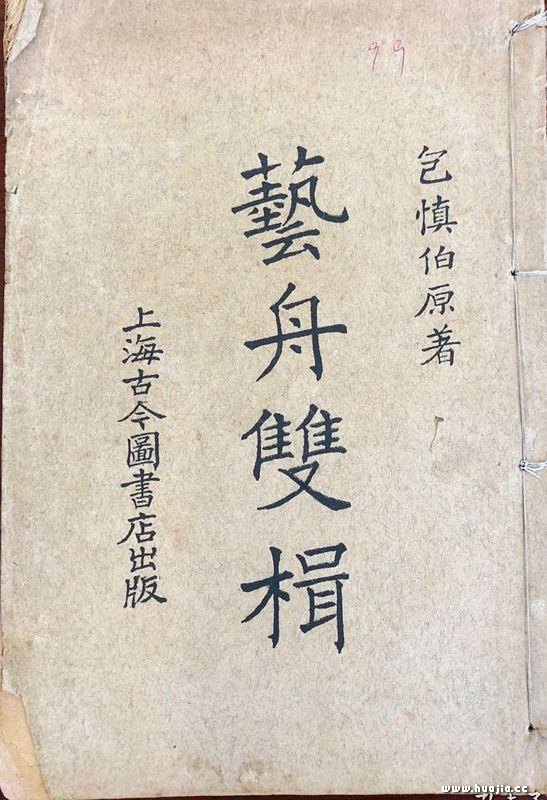 包慎伯原著
藝舟雙楫
上海古今圖書店出版
99
www.huajia.cc